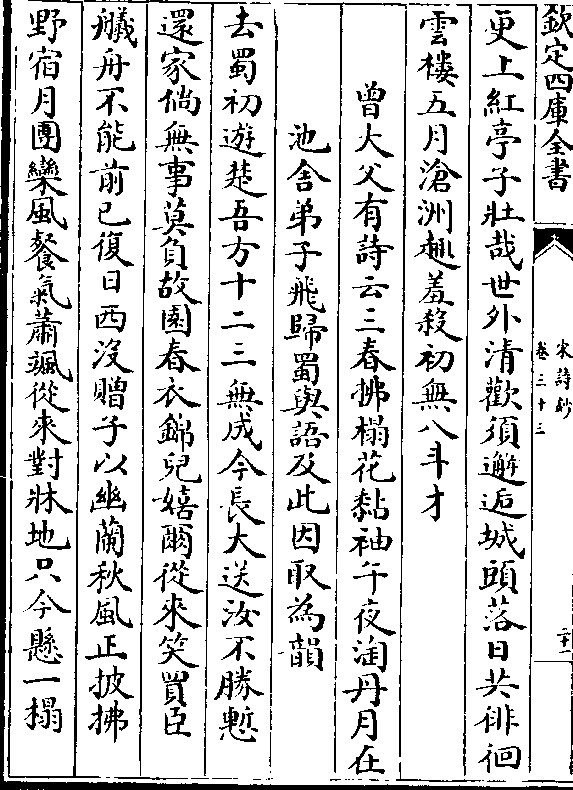 欽定四庫全書
宋詩鈔
卷三十三
更上紅亭子壯哉世外清歡須邂逅城頭落日共徘徊
雲樓五月滄洲趣羞殺初無八斗才
曾大父有詩云三春拂榻花黏袖午夜淘丹月在
池舍弟子飛歸蜀與語及此因取為韻
去蜀初遊楚吾方十二三無成今長大送汝不勝慙
還家倘無事莫負故園春衣錦兒嬉爾從來笑買臣
艤舟不能前已復日西沒贈子以幽蘭秋風正披拂
野宿月團欒風餐氣蕭颯從來對牀地只今懸一榻